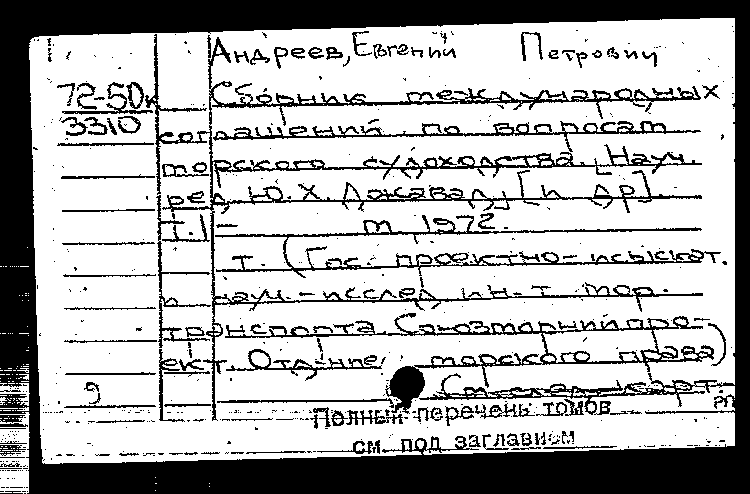 Андреев, Евгений Петрович
72-50к Сборник международных
3310 соглашений по вопросам
морского судоходства. [Науч.
ред. Ю. Х. Джавад] [и др].
Т.1 – м 1972.
т. (Гос. проектно-изыскат.
и науч.-исслед. ин-т мор.
транспорта Союзморниипро-
ект. Отд-ние морского права)
9 См след. карт.
РП
Полный перечень томов
см. под заглавием